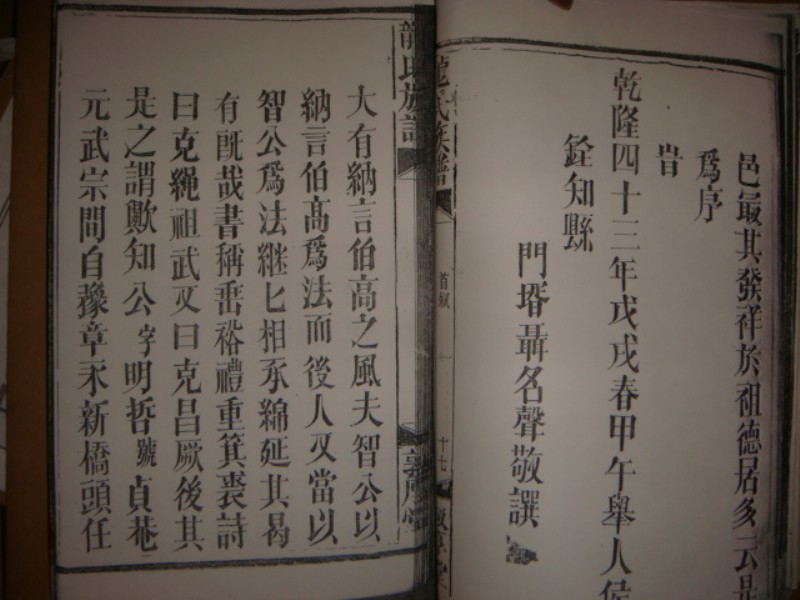 邑最其發祥於祖德居多云是
爲序
旹
乾隆四十三年戊戌春甲午舉人侯
銓知縣
門壻聶名聲敬譔
龍氏族譜
首叙
十七
龍氏族譜
敦厚堂
大有納言伯高之風夫智公以
納言伯髙爲法而後人又當以
智公爲法継匕相承綿延其曷
有旣哉書稱垂裕禮重箕裘詩
曰克繩祖武又曰克昌厥後其
是之謂歟知公字明哲號貞菴
元武宗間自豫章永新橋頭任